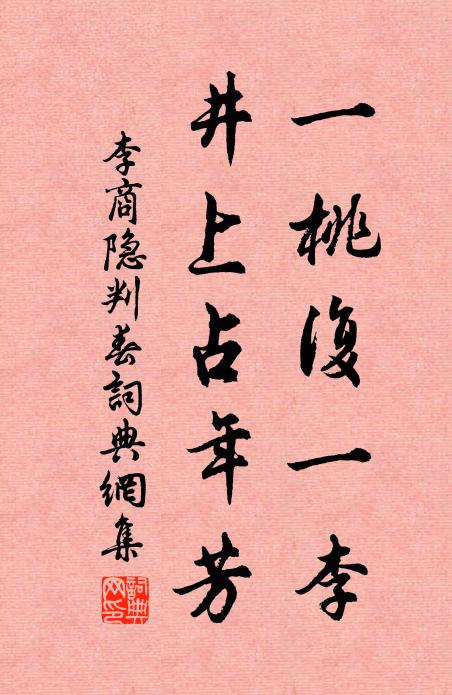 一桃復一李
井上占年芳
李商隐判春詞典網集
詞典網印